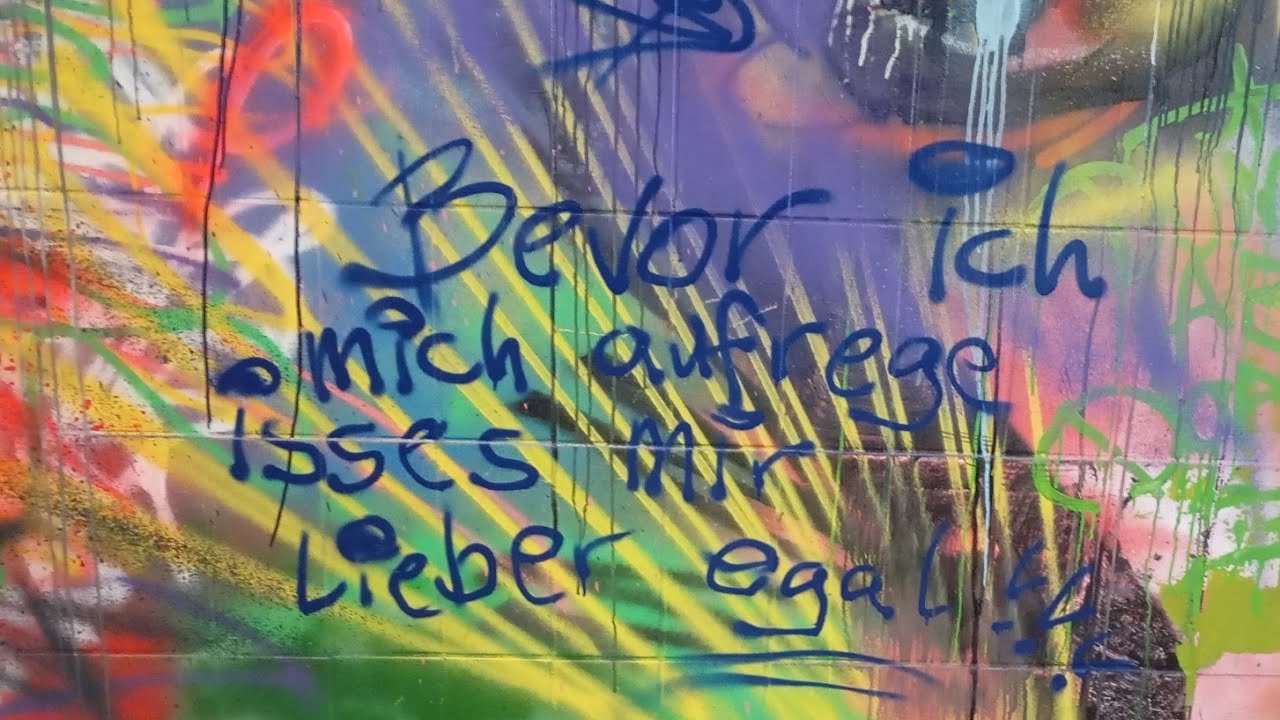 Bevor ich
mich aufrege
isses mir
Lieber egal!!